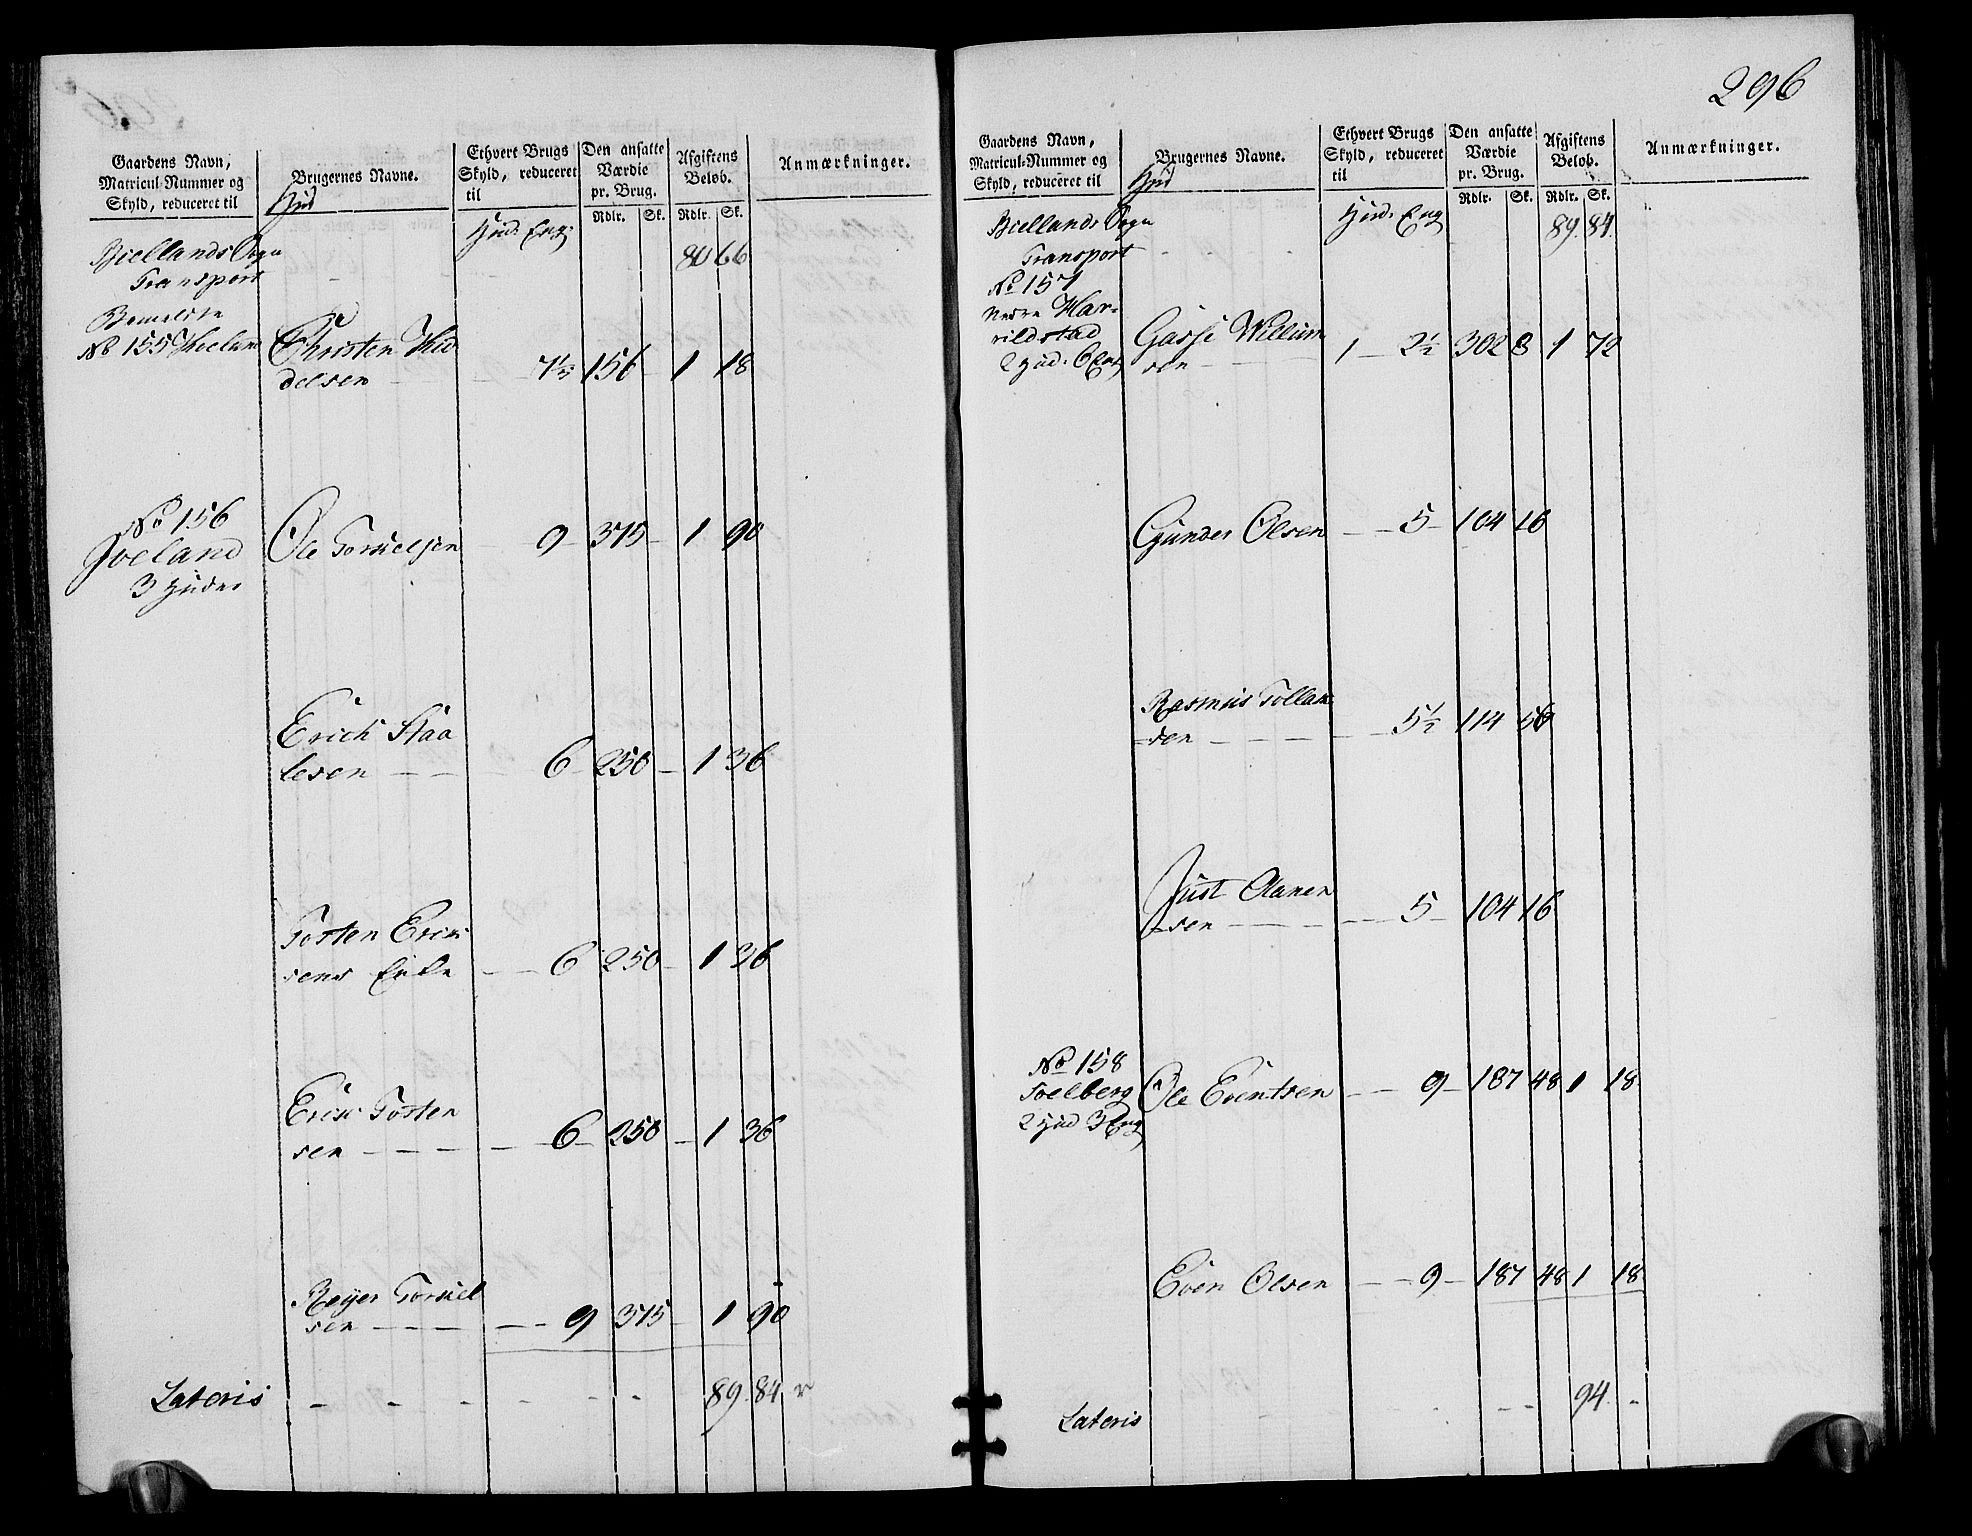 Gaardens Navn,
Matricul-Nummer og
Skyld, reduceret til
Brugernes Navne.
Ethvert Brugs
Skyld, reduceret
til
Den ansatte
Værdie
pr. Brug.
Rdlr. Sk.
Afgiftens
Beløb.
Rdlr. Sk.
Anmærkninger.
Hud. Eng:
Biellands Sogn
Transport - - - 80 66
Bemeldte
No 155 Christen
delsen - - 7½ 156 - 1 18
No 156
Joeland
3 Huder
Ole Torkielsen 9 - 375 - 1 90
Erich Staa
lesen - - - 6 - 250 - 1 36
Tosten Erich
sens Enke - - 6 250 - 1 36
Erich Tosten
sen - - - - - 6 - 250 - 1 36
Reyer Torkiel
sen - - - - - 9 375 - 1 90
Lateris - - - - - - 89 84
296
Gaardens Navn,
Matricul-Nummer og
Skyld, reduceret til
Brugernes Navne.
Ethvert Brugs
Skyld, reduceret
til
Den ansatte
Værdie
pr. Brug.
Rdlr. Sk.
Afgiftens
Beløb.
Rdlr. Sk.
Anmærkninger.
Hud. Eng
Biellands Sogn
Transport - - - 89 84
No 157
Nedre Har-
rildstad
2 Hud. 6 Eng
Willum
sen - - 1 - 2½ 302 8 1 72
Gunder Olsen - - 5 - 104 16
Rasmus Tollam
sen - - - - 5½ 114 56
Just Aanen
sen - - - - 5 - 104 16
No 158
2 Hud 3 Eng
Ole Eventsen - - 9 - 187 48 1 18
Even Olsen - - 9 - 187 48 1 18
Lateris - - - - 94 -